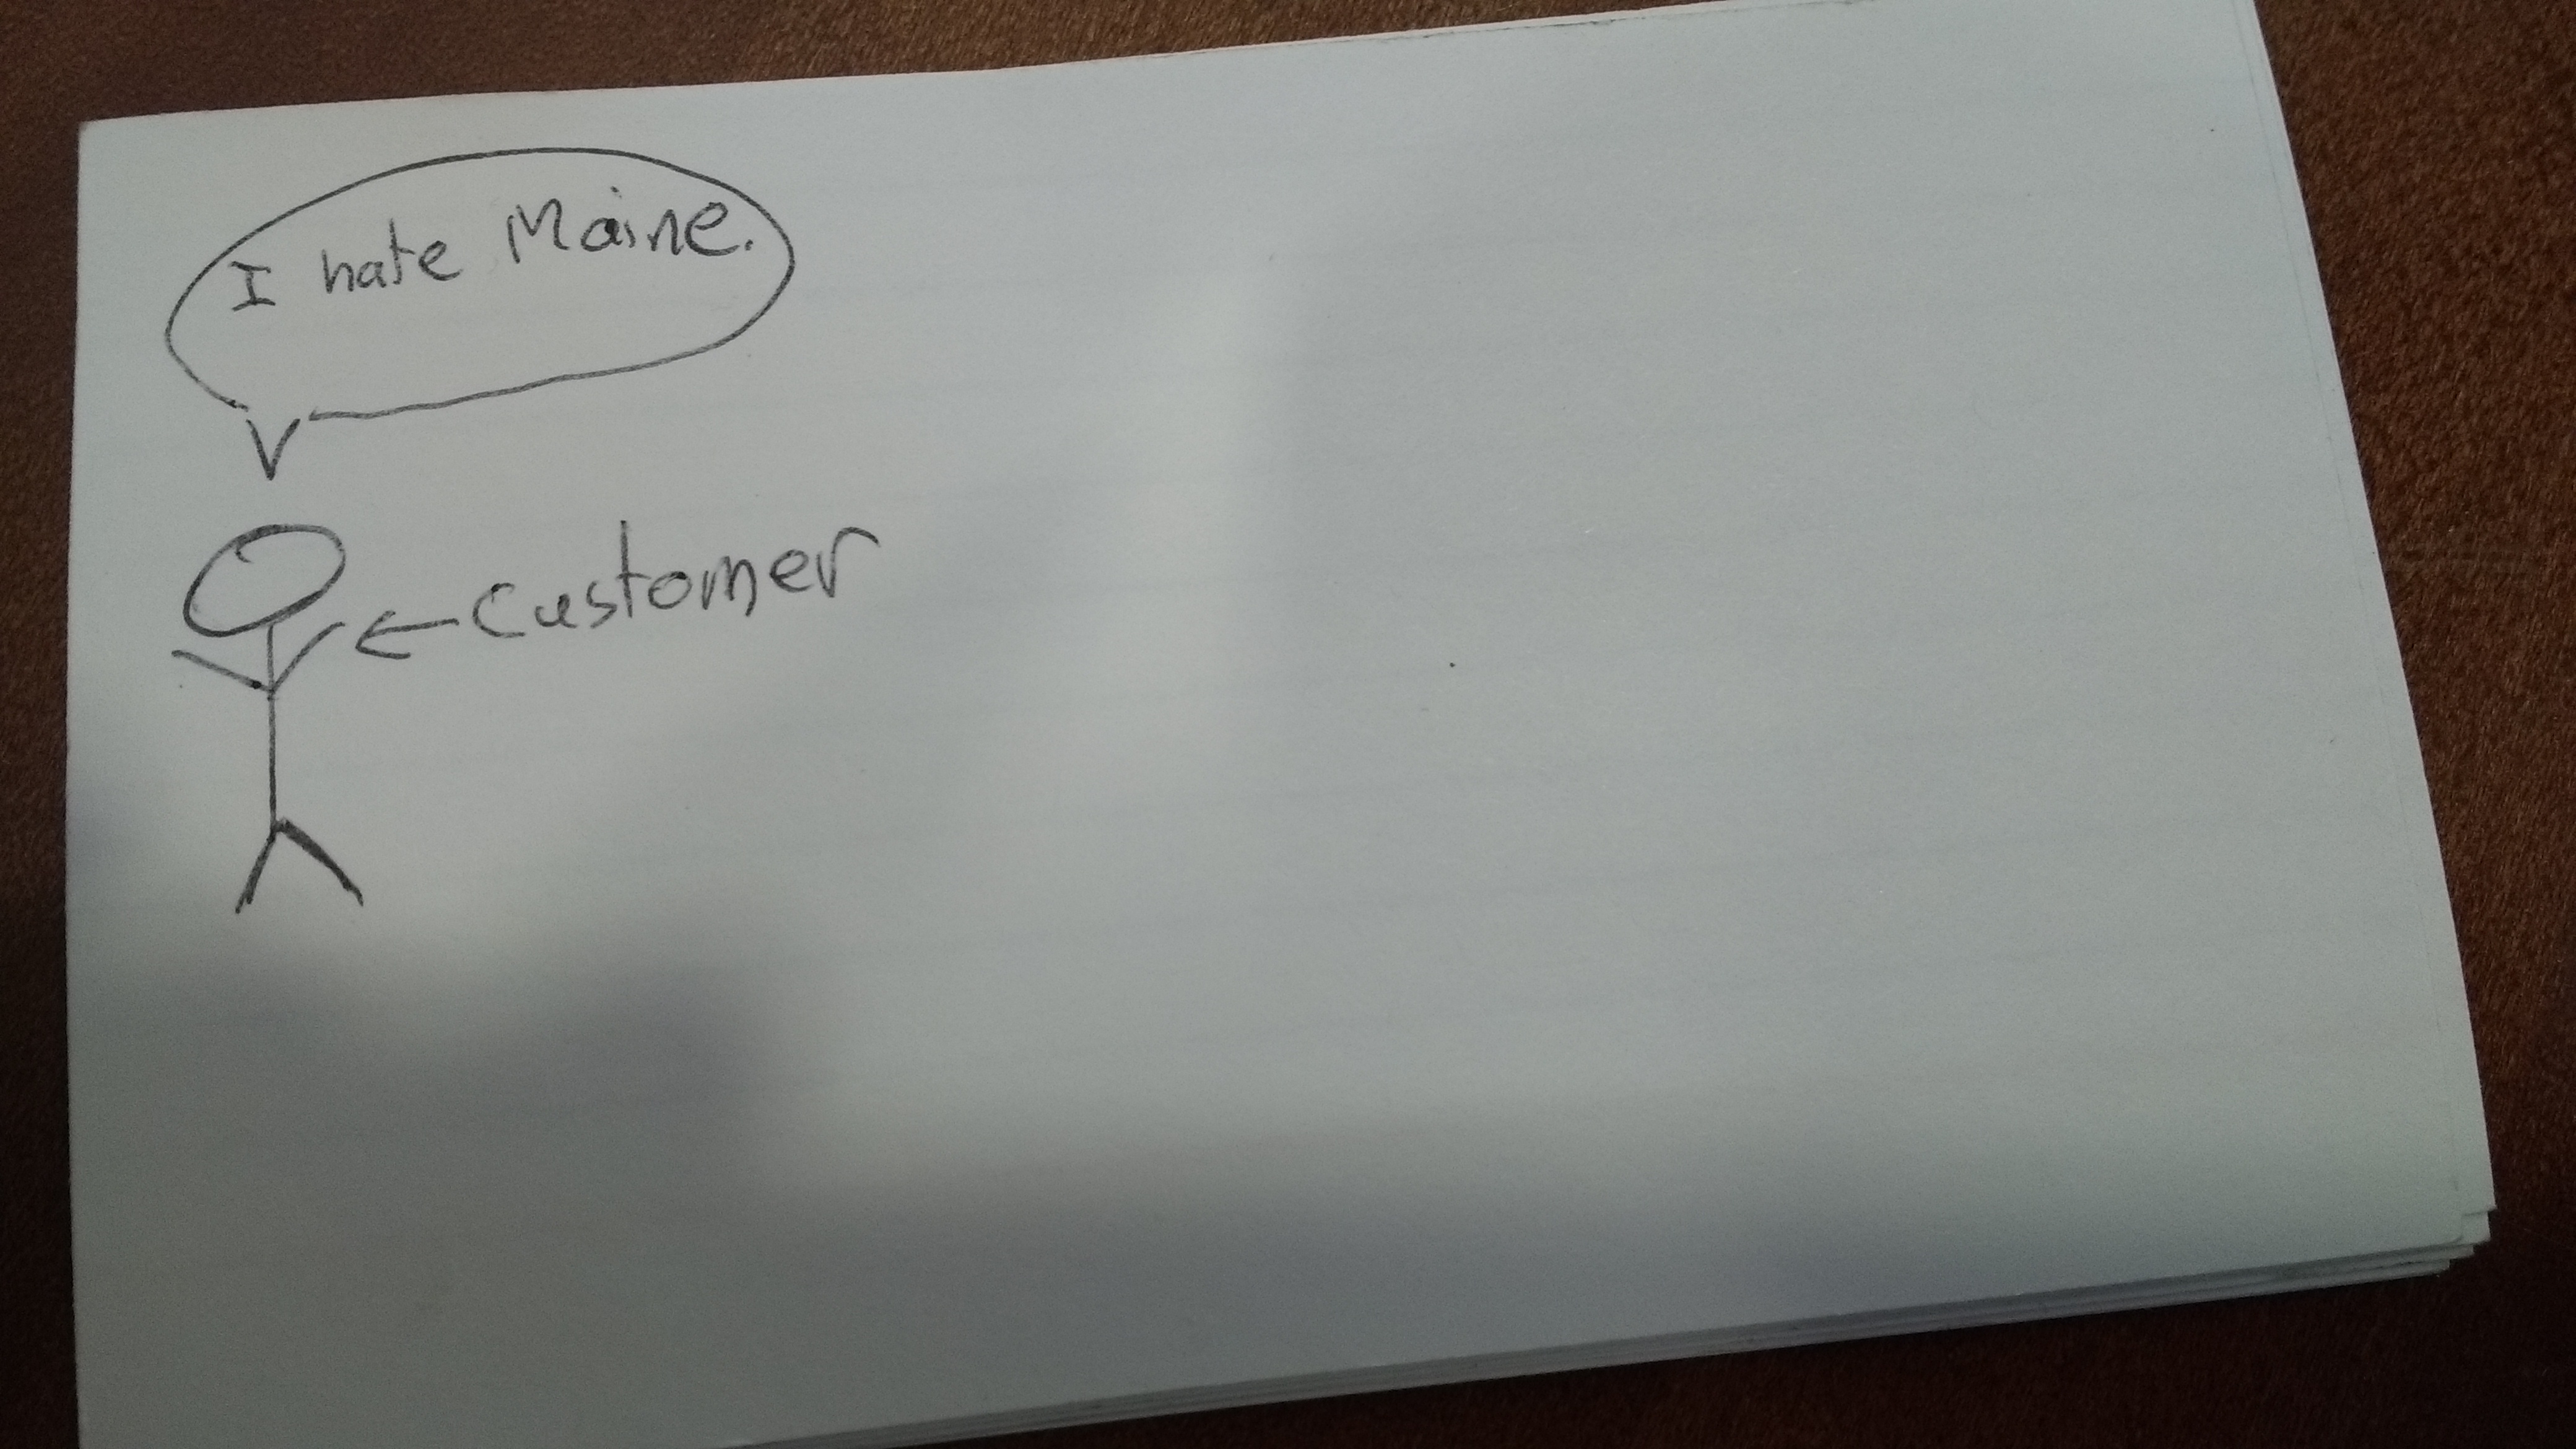 I hate Maine.
← Customer